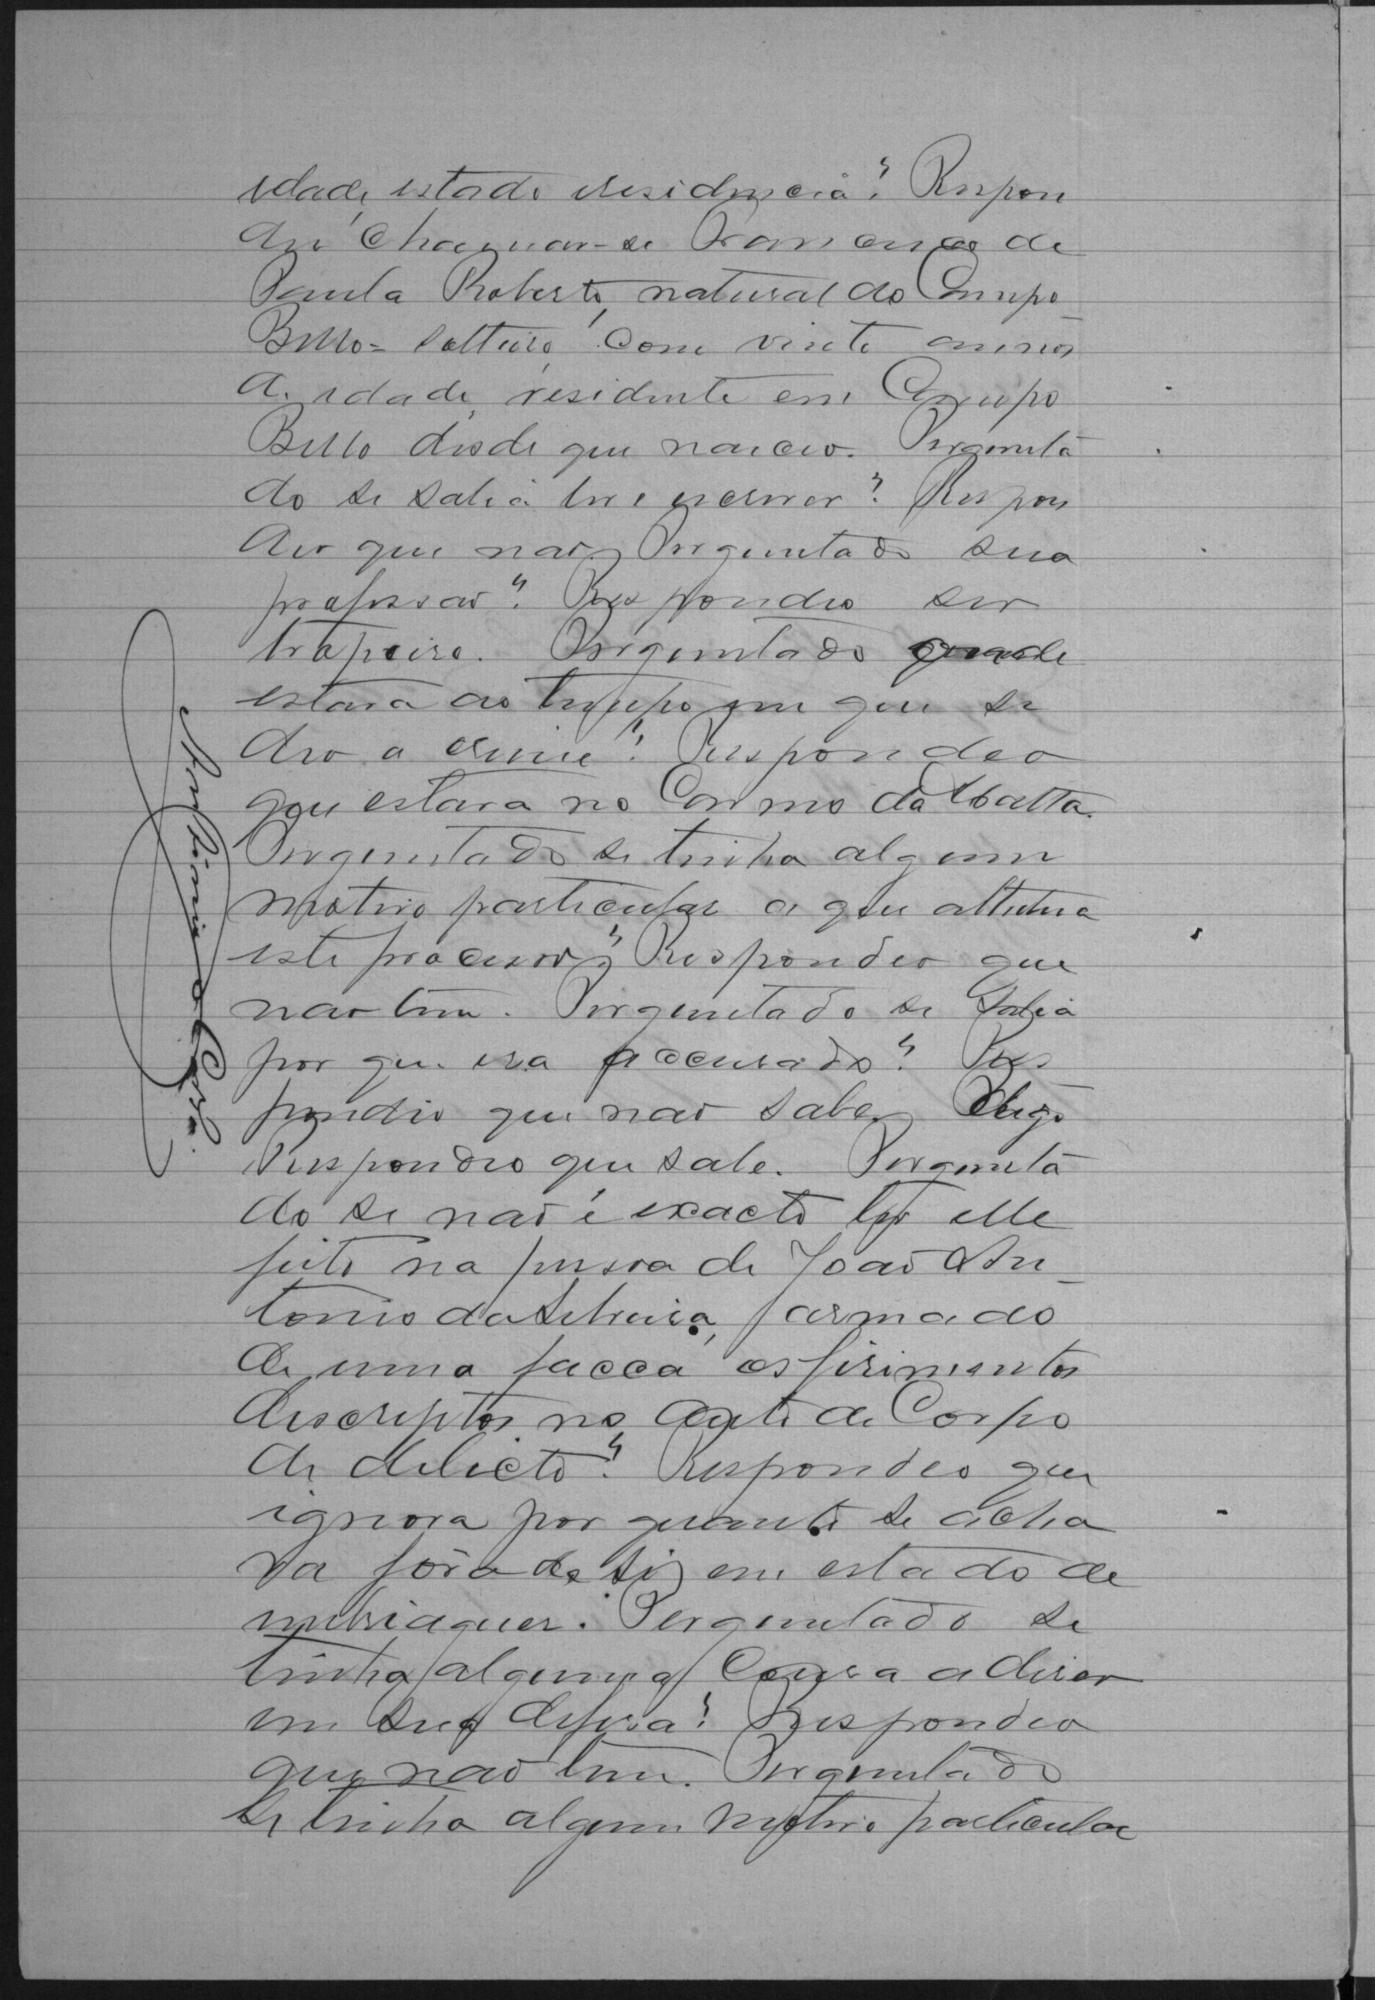 idade, estado e residencia? Respon
deu chamar-se Francisco de
Paula Roberto, natural do Campo
Bello = solteiro com vinte annos
de idade, residente em Campo
Bello desde que nasceo. Pergunta
do se sabia ler e escrever? Respon
deo que não. Perguntado sua
profissão? Respondeo ser
tropeiro. Perguntado onde
estava ao tempo em que se
deo o crime? Respondeo
que estava no Commo da Matta.
Perguntado se tinha algum
motivo particular a que attribua
este processo? Respondeo que
não tem. Perguntado se sabia
por que era accusado? Res
pondeo que não sabe, digo
Respondeo que sabe. Pergunta
do se não é exacto ter elle
feito na pessoa de João An-
tonio da Silveira, armado
de uma facca os ferimentos
descriptos no auto de Corpo
de delicto? Respondeo que
ignora por quanto se acha
va fóra de si, em estado de
embriaguez. Perguntado se
tinha alguma cousa a diser
em sua defesa? Respondeo
que não tem. Perguntado
se tinha algum motivo particular